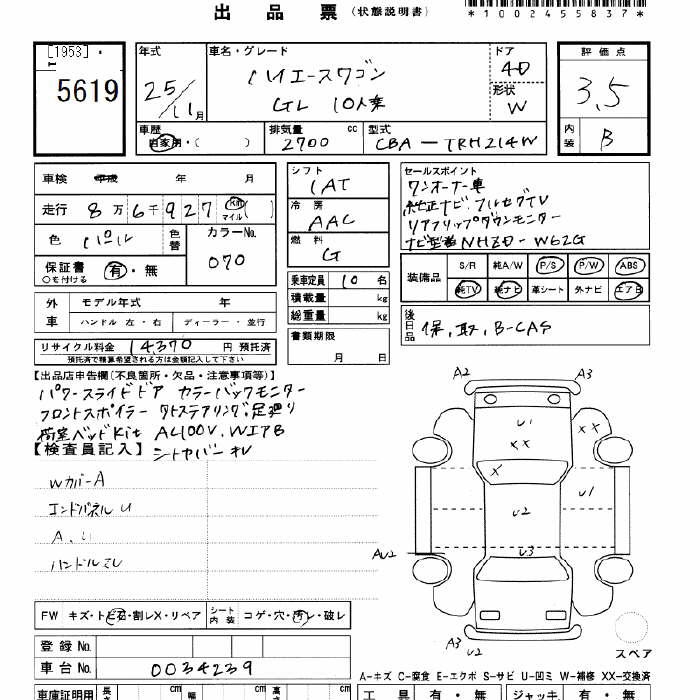 出品票 (状態説明書)
*1002455837*
[1953]
5619
年式
25/11月
車名・グレード
ハイエースワゴン
GL 10人乗
ドア
4D
形状
W
評価点
3.5
内装
B
車歴
自家用・( )
排気量
2700 cc
型式
CBA-TRH214W
車検 年 月
走行 8万6千927 Km マイル ( )
色 パール
色替
カラーNo.
070
保証書 有・無
○を付ける
シフト
1AT
冷房
AAC
燃料
G
セールスポイント
ワンオーナー車
純正ナビ・フルセグTV
リアフリップダウンモニター
ナビ型番NHZD-W62G
外車
モデル年式 年
ハンドル 左・右
ディーラー・並行
乗車定員 10 名
積載量 kg
総重量 kg
装備品
S/R 純A/W P/S P/W ABS
純TV 純ナビ 革シート 外ナビ エアB
リサイクル料金 14370 円 預託済
預託済で精算希望される方は金額記入して下さい
書類期限
月 日
後日品
保、取、B-CAS
【出品店申告欄(不良箇所・欠品・注意事項等)】
パワースライドドア カラーバックモニター
フロントスポイラー
足廻り
ベッドKit AC100V、
【検査員記入】
シートカバー
Wカバー A
エンドパネル U
A、U
ハンドルスレ
A2 A3
U1
XX
XX
X
U1
U2
AU2
U3
A3 U2
スペア
FW キズ・トビ石・割レX・リペア
シート内装 コゲ・穴・汚レ・破レ
登録No.
車台No. 0034239
A-キズ C-腐食 E-エクボ S-サビ U-凹ミ W-補修 XX-交換済
車庫証明用 長さ cm 幅 cm 高さ cm
工具 有・無 ジャッキ 有・無